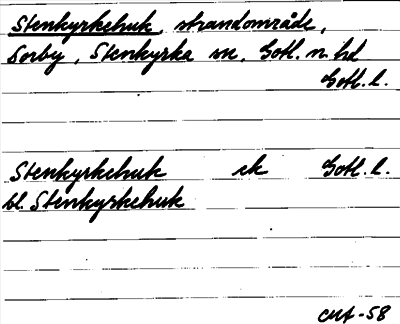 Stenkyrkehuk, strandområde,
Sorby, Stenkyrka sn, Gotl. n. hd
Gotl. l.
Stenkyrkehuk ek Gotl. l.
bl. Stenkyrkehuk
CMA-58